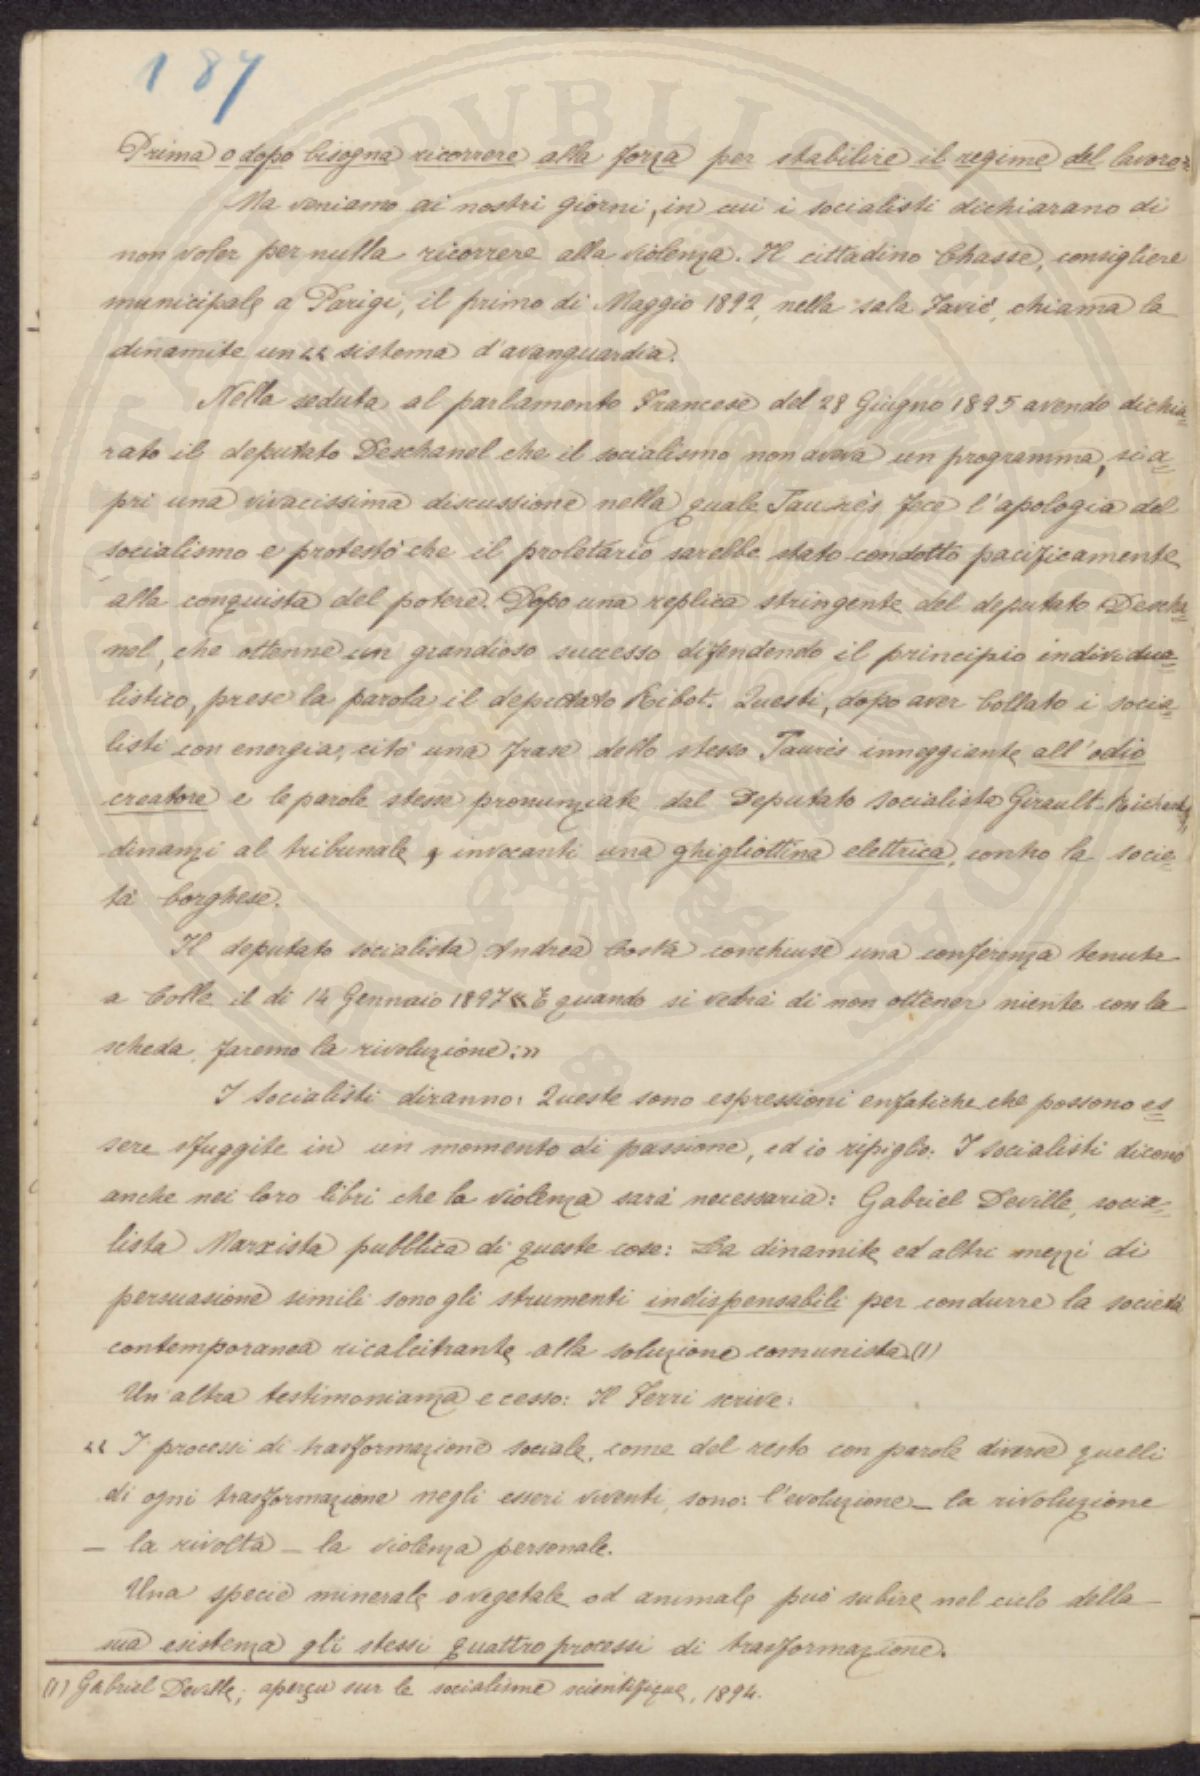 187
Prima o dopo bisogna ricorrere alla forza per stabilire il regime del lavoro=
Ma veniamo ai nostri giorni, in cui i socialisti dichiarano di
non voler per nulla ricorrere alla violenza. Il cittadino Chasse, consigliere
municipale a Parigi, il primo di Maggio 1892, nella sala Favié, chiama la
dinamite un « sistema d'avanguardia.
Nella seduta al parlamento Francese del 28 Giugno 1895 avendo dichia=
rato il deputato Deschanel che il socialismo non aveva un programma, si a=
prì una vivacissima discussione nella quale Jaurès fece l'apologia del
socialismo e protestò che il proletario sarebbe stato condotto pacificamente
alla conquista del potere. Dopo una replica stringente del deputato Descha=
nel, che ottenne un grandioso successo difendendo il principio individua=
listico, prese la parola il deputato Ribot. Questi, dopo aver bollato i socia=
listi con energia, citò una frase dello stesso Jaurès inneggiante all'odio
creatore e le parole stesse pronunziate dal Deputato socialista Girault-Richard,
dinanzi al tribunale, invocanti una ghigliottina elettrica, contro la socie=
tà borghese.
Il deputato socialista Andrea Costa conchiuse una conferenza tenuta
a Colle il dì 14 Gennaio 1897 « E quando si vedrà di non ottener niente con la
scheda, faremo la rivoluzione: »
I socialisti diranno: Queste sono espressioni enfatiche che possono es=
sere sfuggite in un momento di passione, ed io ripiglio: I socialisti dicono
anche nei loro libri che la violenza sarà necessaria: Gabriel Deville, socia=
lista Marxista pubblica di queste cose: La dinamite ed altri mezzi di
persuasione simili sono gli strumenti indispensabili per condurre la società
contemporanea ricalcitrante alla soluzione comunista. (1)
Un'altra testimonianza e cesso: Il Ferri scrive:
« I processi di trasformazione sociale, come del resto con parole diverse quelli
di ogni trasformazione negli esseri viventi, sono: l'evoluzione – la rivoluzione
– la rivolta – la violenza personale.
Una specie minerale o vegetale od animale può subire nel ciclo della
sua esistenza gli stessi quattro processi di trasformazione.
(1) Gabriel Deville; aperçu sur le socialisme scientifique, 1894.